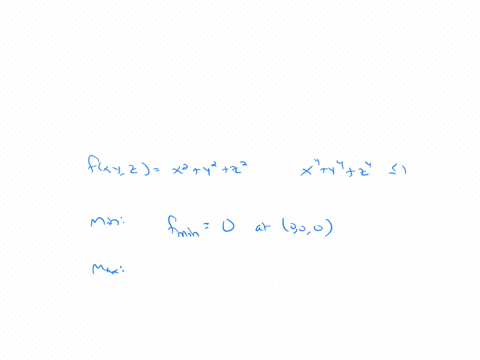 f(x,y,z) = x² + y² + z² x⁴ + y⁴ + z⁴ ≤ 1
Min: f_min = 0 at (0,0,0)
Max: